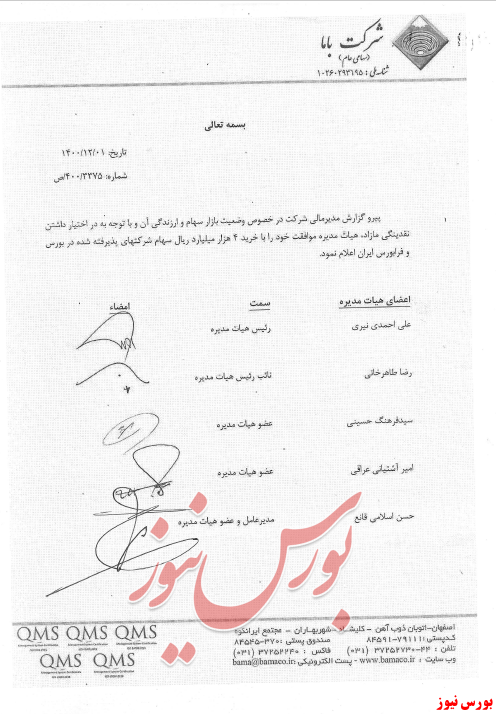 شرکت باما
(سهامی عام)
شناسه ملی: ۱۰۲۶۰۲۹۳۱۹۵
بسمه تعالی
تاریخ: ۱۴۰۰/۱۲/۰۱
شماره: ۴۰۰/۳۳۷۵/ص
پیرو گزارش مدیرمالی شرکت در خصوص وضعیت بازار سهام و ارزندگی آن و با توجه به در اختیار داشتن
نقدینگی مازاد، هیأت مدیره موافقت خود را با خرید ۴ هزار میلیارد ریال سهام شرکتهای پذیرفته شده در بورس
و فرابورس ایران اعلام نمود.
اعضای هیات مدیره سمت امضاء
علی احمدی نیری رئیس هیات مدیره
رضا طاهرخانی نائب رئیس هیات مدیره
سیدفرهنگ حسینی عضو هیات مدیره
امیر آشتیانی عراقی عضو هیات مدیره
حسن اسلامی قانع مدیرعامل و عضو هیات مدیره
بورس نیوز
اصفهان-اتوبان ذوب آهن - کلیشاد -شهربهاران - مجتمع ایرانکوه
کدپستی: ۸۴۵۹۱-۷۹۱۱۱ صندوق پستی: ۳۷۰-۸۴۵۴۵
تلفن : ۴۴-۳۷۲۵۲۷۳۰ (۰۳۱) فاکس : ۳۷۲۵۲۲۴۰ (۰۳۱)
وب سایت : www.bamaco.ir - پست الکترونیکی: bama@bamaco.ir
QMS QMS QMS
QMS QMS
بورس نیوز